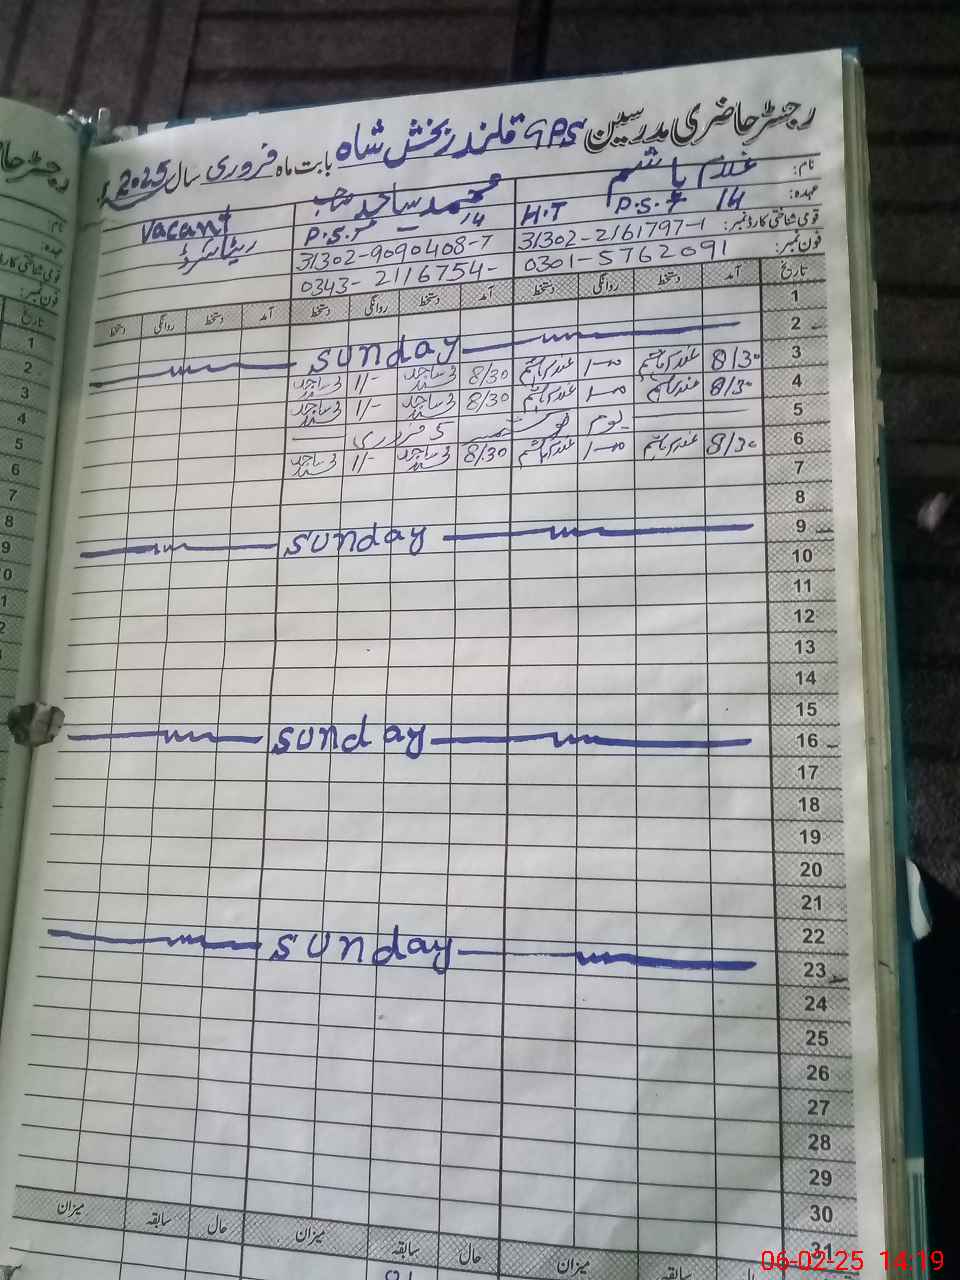 رجسٹر حاضری مدرسین GPS قلندر بخش شاہ بابت ماہ فروری سال 2025ء
نام: غلام ہاشم محمد ساجد صاحب Vacant
عہدہ: H.T P.S.T 14 P.S.T 14 ریٹائرڈ
قومی شناختی کارڈ نمبر: 31302-2161797-1 31302-9090408-7
فون نمبر: 0301-5762091 0343-2116754-
تاریخ آمد دستخط روانگی دستخط آمد دستخط روانگی دستخط آمد دستخط روانگی دستخط
1
2 Sunday
3 8/30 غلام ہاشم 1-00 غلام ہاشم 8/30 ساجد 1/- ساجد
4 8/30 غلام ہاشم 1-00 غلام ہاشم 8/30 ساجد 1/- ساجد
5 یوم 5 فروری
6 8/30 غلام ہاشم 1-00 غلام ہاشم 8/30 ساجد 1/- ساجد
7
8
9 Sunday
10
11
12
13
14
15
16 Sunday
17
18
19
20
21
22
23 Sunday
24
25
26
27
28
29
30
31
حال سابقہ میزان حال سابقہ میزان حال سابقہ میزان
رجسٹر حاضری
نام:
عہدہ:
قومی شناختی کارڈ نمبر
فون نمبر:
تاریخ
1
2
3
4
5
6
7
8
9
06-02-25 14:19